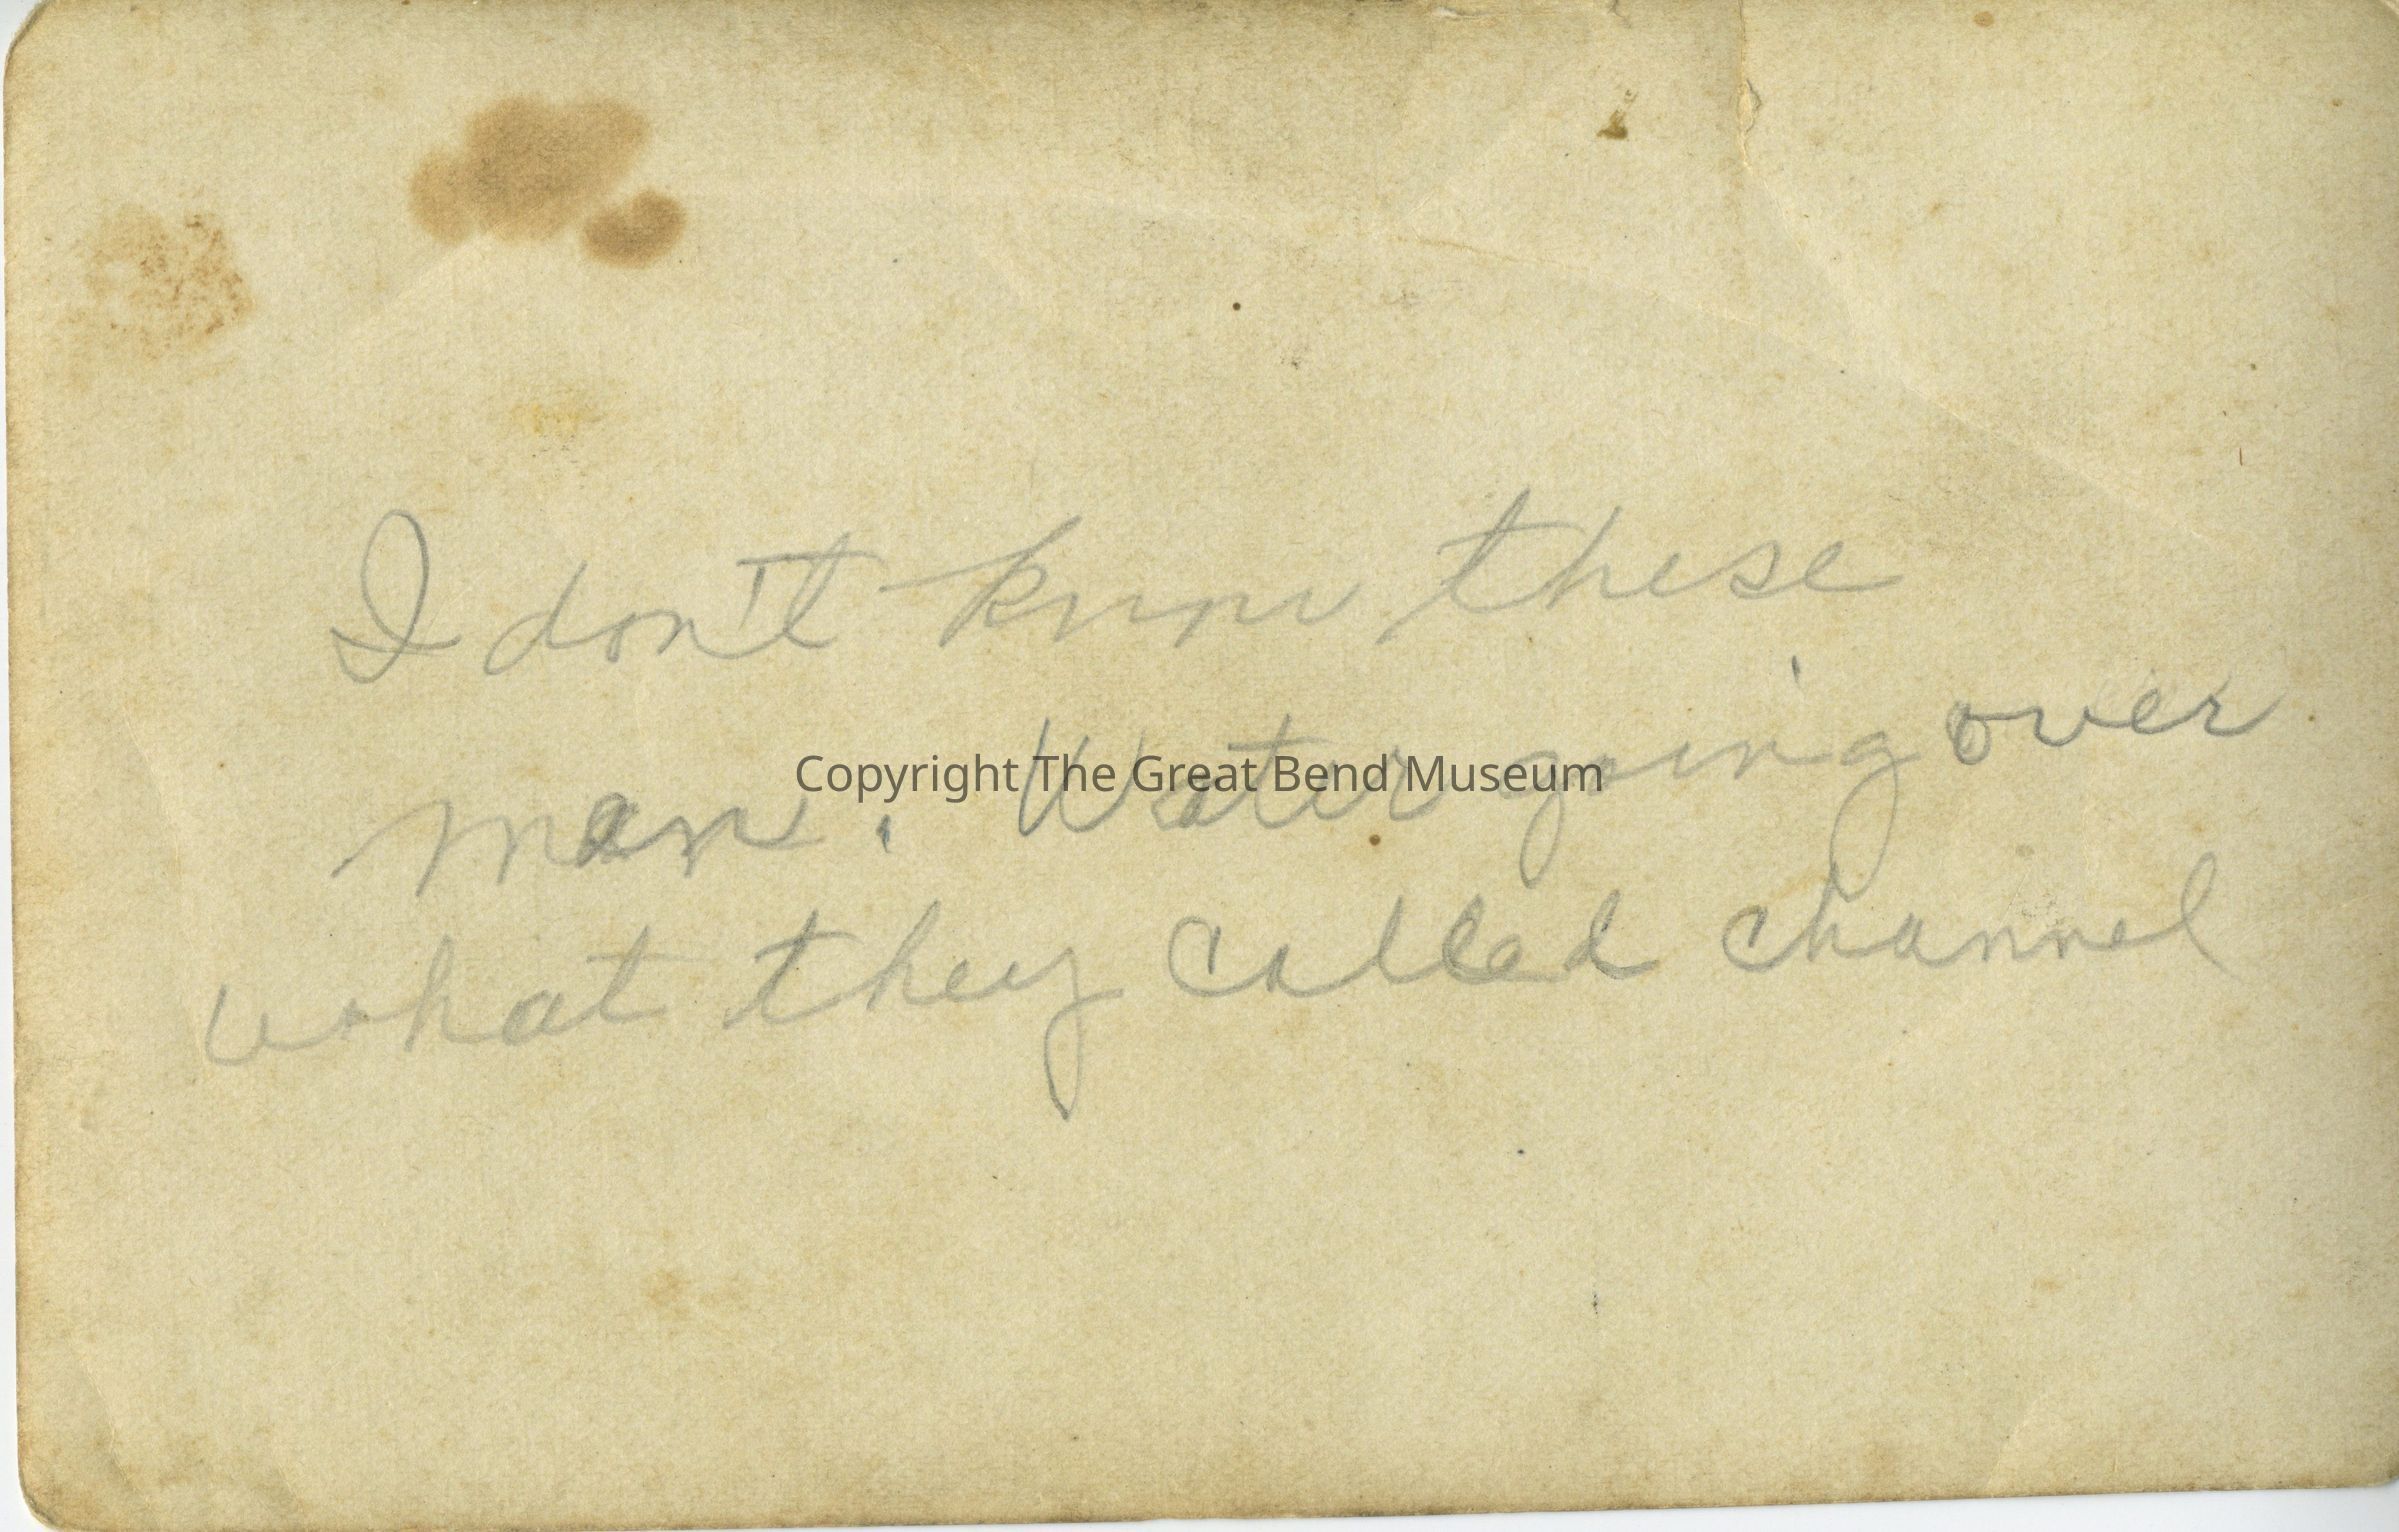 I don't know these
man. Water going over
Copyright The Great Bend Museum
what they called channel